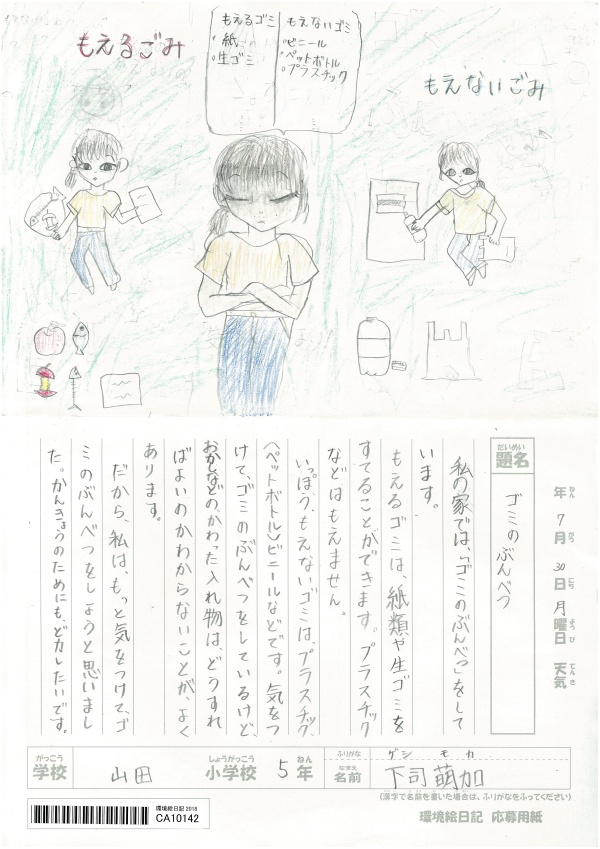 もえるごみ
もえるゴミ
・紙
・生ゴミ
もえないゴミ
・ビニール
・ペットボトル
・プラスチック
もえないごみ
年 7月 30日 月曜日 天気
ねん がつ にち ようび てんき
だいめい
題名
ゴミのぶんべつ
私の家では、「ゴミのぶんべつ」をして
います。
もえるゴミは、紙類や生ゴミを
すてることができます。プラスチック
などはもえません。
いっぽう、もえないゴミは、プラスチック、
(ペットボトル)ビニールなどです。気をつ
けて、ゴミのぶんべつをしているけど、
おかしなどのかわった入れ物は、どうすれ
ばよいのかわからないことが、よく
あります。
だから、私は、もっと気をつけて、ゴ
ミのぶんべつをしようと思いまし
た。かんきょうのためにも、ど力したいです。
がっこう
学校
山田
しょうがっこう
小学校
5
ねん
年
ふりがな
ゲシ モカ
なまえ
名前
下司 萌加
(漢字で名前を書いた場合は、ふりがなをふってください)
環境絵日記 2018
CA10142
環境絵日記 応募用紙